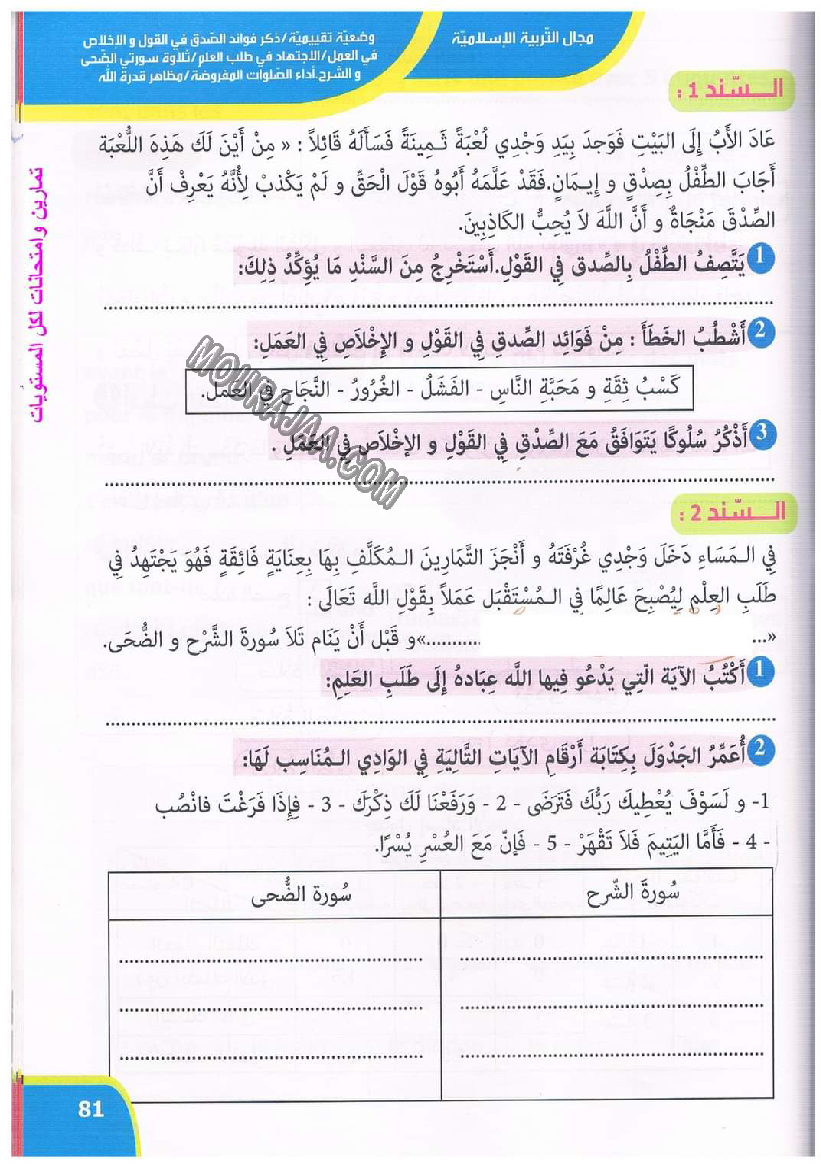 مجال التّربية الإسلاميّة
وضعيّة تقييميّة/ذكر فوائد الصّدق في القول و الاخلاص
في العمل/الاجتهاد في طلب العلم/تلاوة سورتي الضّحى
و الشرح.أداء الصّلوات المفروضة/مظاهر قدرة الله
تمارين وامتحانات لكل المستويات
السّند 1 :
عَادَ الأَبُ إِلَى البَيْتِ فَوَجَدَ بِيَدِ وَجْدِي لُعْبَةً ثَمِينَةً فَسَأَلَهُ قَائِلاً : « مِنْ أَيْنَ لَكَ هَذِهِ اللُّعْبَة
أَجَابَ الطِّفْلُ بِصِدْقٍ و إِيمَانٍ.فَقَدْ عَلَّمَهُ أَبُوهُ قَوْلَ الْحَقِّ و لَمْ يَكْذبْ لِأَنَّهُ يَعْرِفْ أَنَّ
الصِّدْقَ مَنْجَاةٌ و أَنَّ اللَّهَ لاَ يُحِبُّ الكَاذِبِينَ.
1 يَتَّصِفُ الطِّفْلُ بِالصِّدق فِي القَوْلِ.أَسْتَخْرِجُ مِنَ السَّنْدِ مَا يُؤَكِّدُ ذلِكَ:
2 أَشْطُبُ الخَطَأَ : مِنْ فَوَائِد الصِّدقِ فِي القَوْلِ و الإِخْلاَصِ فِي العَمَلِ:
كَسْبُ ثِقَةِ و مَحَبَّةِ النَّاسِ - الفَشَلُ - الغُرُورُ - النَّجَاح فِي العَمَل.
MOURAJAA.COM
3 أَذْكُرُ سُلُوكًا يَتَوَافَقُ مَعَ الصِّدْقِ فِي القَوْلِ و الإخْلاَصِ فِي العَمَلِ .
السّند 2 :
فِي الـمَسَاءِ دَخَلَ وَجْدِي غُرْفَتَهُ و أَنْجَزَ التَّمَارِينَ الـمُكَلَّفِ بِهَا بِعِنَايَةٍ فَائِقَةٍ فَهُوَ يَجْتَهِدُ فِي
طَلَبِ العِلْمِ لِيُصْبِحَ عَالِمًا فِي الـمُسْتَقْبَل عَمَلاً بِقَوْلِ اللَّه تَعَالَى :
«... ...........»و قَبْل أَنْ يَنَام تَلاَ سُورَةَ الشَّرْح و الضُّحَى.
1 أَكْتُبُ الآيَةَ الّتِي يَدْعُو فِيها اللَّه عِبَادهُ إِلَى طَلَبِ العَلِمِ:
2 أُعَمِّرُ الجَدْوَلَ بِكِتَابَة أَرْقَامِ الآيَاتِ التَّالِيَةِ فِي الوَادِي الـمُنَاسِبِ لَهَا:
1- و لَسَوْفَ يُعْطِيكَ رَبُّكَ فَتَرَضَى - 2 - وَرَفَعْنَا لَكَ ذِكْرَكَ - 3 - فِإِذَا فَرَغْتَ فانْصُب
- 4 - فَأَمَّا اليَتِيمَ فَلاَ تَقْهَرْ - 5 - فَإنّ مَعَ العُسْرِ يُسْرًا.
سُورَةَ الشّرح
سُورة الضُّحى
81